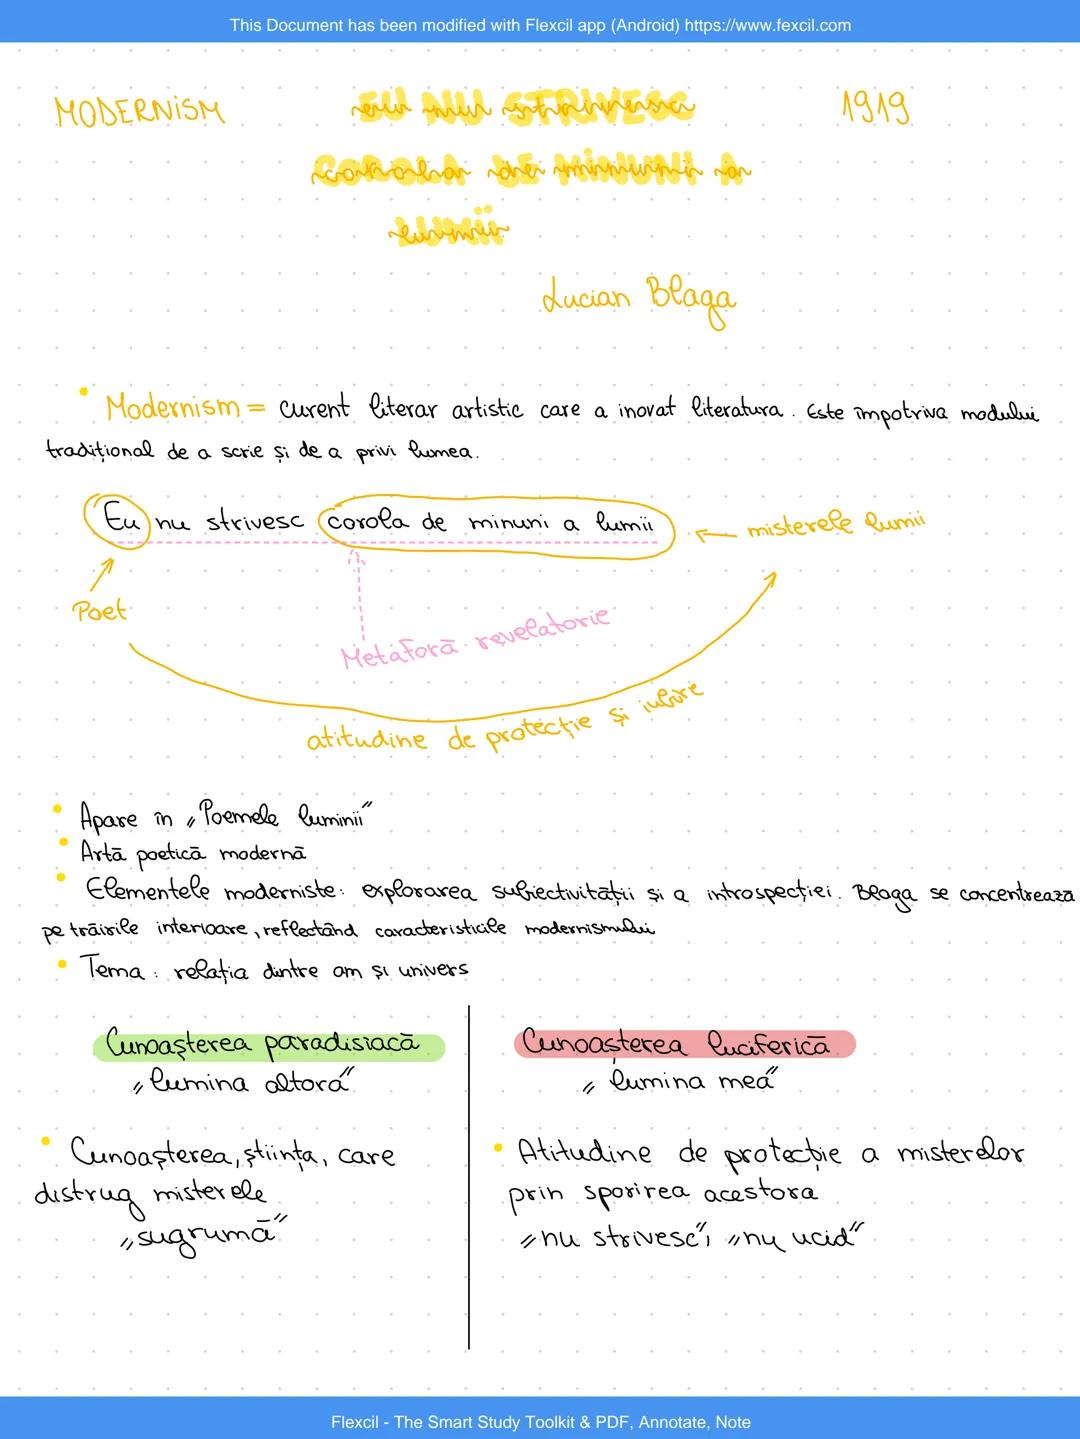 This Document has been modified with Flexcil app (Android) https://www.fexcil.com
MODERNISM
EU NU STRIVESC
COROLA DE MINUNI A
LUMII
1919
Lucian Blaga
• Modernism = curent literar artistic care a inovat literatura. Este împotriva modului
tradițional de a scrie și de a privi lumea.
Eu nu strivesc corola de minuni a lumii ← misterele lumii
Poet
Metaforă revelatorie
atitudine de protecție și iubire
• Apare în „Poemele luminii”
• Artă poetică modernă
• Elementele moderniste: explorarea subiectivității și a introspecției. Blaga se concentrează
pe trăirile interioare, reflectând caracteristicile modernismului
• Tema: relația dintre om și univers
Cunoașterea paradisiacă
„lumina altora”
• Cunoașterea, știința, care
distrug misterele
„sugrumă”
Cunoașterea luciferică
„lumina mea”
• Atitudine de protecție a misterelor
prin sporirea acestora
„nu strivesc”, „nu ucid”
Flexcil - The Smart Study Toolkit & PDF, Annotate, Note